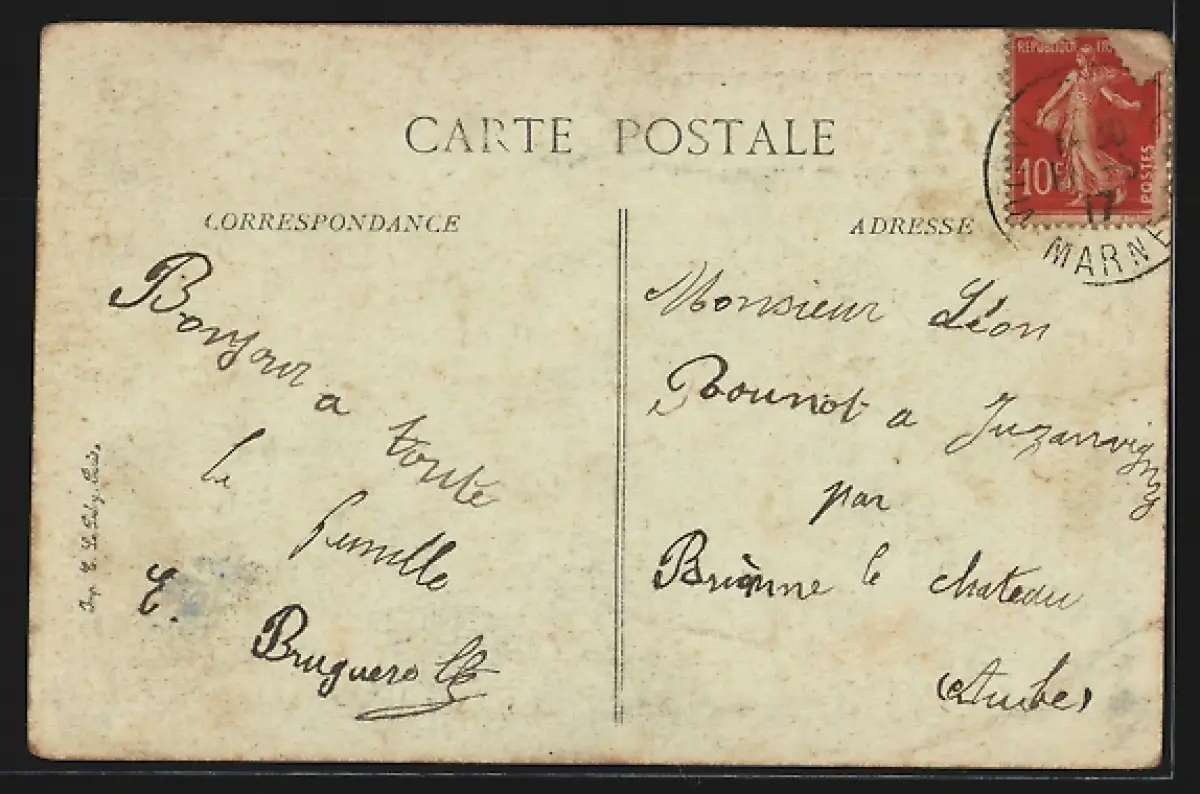 CARTE POSTALE
CORRESPONDANCE
Bonjour
a
toute
la
famille
E.
Bruguerolle
Imp. E. Le Deley, Paris.
ADRESSE
Monsieur Léon
Rounot a Juzanvigny
par
Brienne le chateau
(Aube)
REPUBLIQUE FR
10c
POSTES
17
MARNE